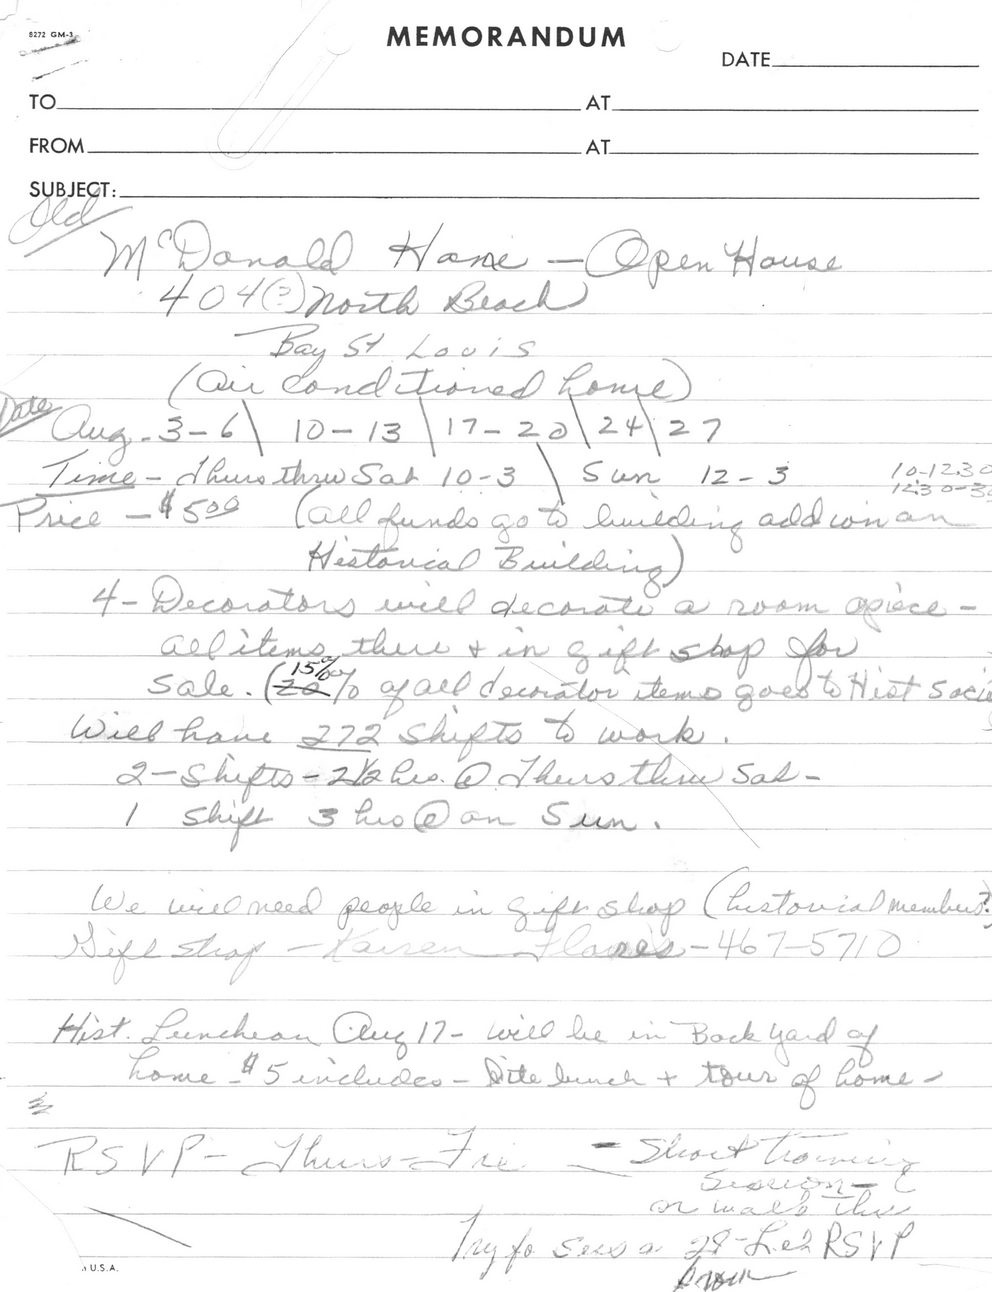 8272 GM-3
MEMORANDUM
DATE
TO AT
FROM AT
SUBJECT:
Old
McDonald Home — Open House
404(?) North Beach
Bay St Louis
(air conditioned home)
Date
Aug. 3-6 \ 10-13 \ 17-20 \ 24 \ 27
Time - Thurs thru Sat 10-3 \ Sun 12-3
10-12:30
12:30-3
Price - $5.00 (all funds go to building add on
Historical Building)
4 - Decorators will decorate a room apiece -
all items there & in gift shop for
15%
sale. (20% of all decorator items goes to Hist Socie
Will have 272 shifts to work.
2 - shifts - 2 1/2 hrs. @ Thurs thru Sat -
1 shift 3 hrs @ on Sun.
We will need people in gift shop (historical members?)
Gift shop - Karen - 467-5710
Hist. Luncheon Aug 17 - will be in Back yard of
home - $5 includes - lite lunch & tour of home -
RSVP - Thurs - Fri - Short training
session -
or walk thru
28 - RSVP
U.S.A.